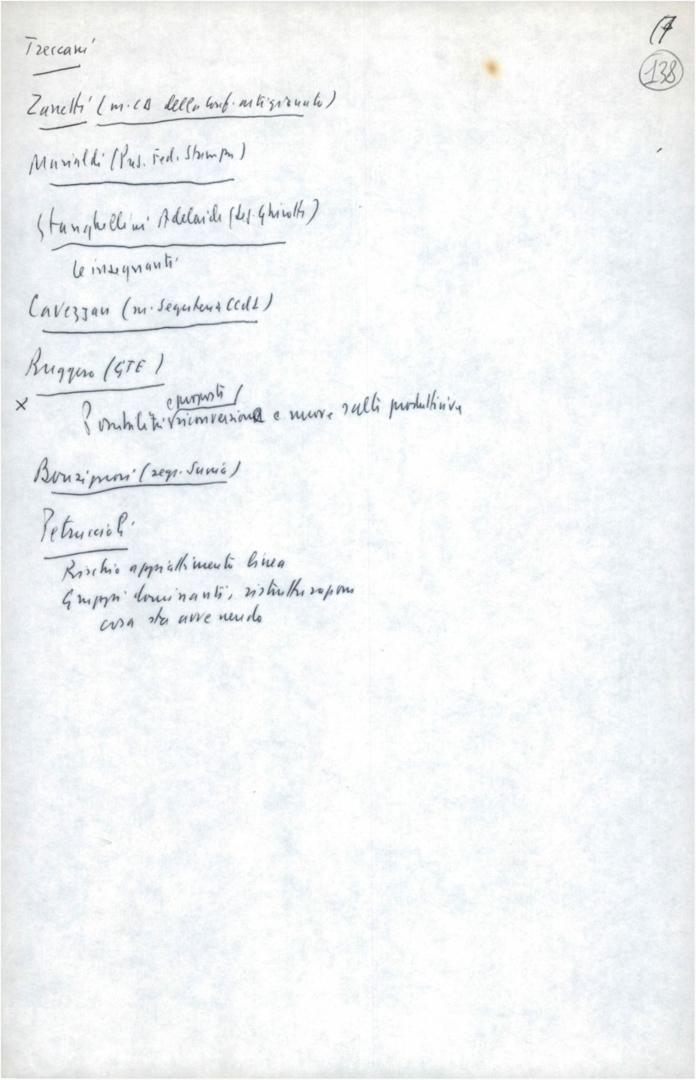 17
138
Treccani
Zanetti (m. CD della Conf. artigianato)
Murialdi (Pres. Fed. Stampa)
Stanghellini Adelaide (Leg. Ghirotti)
le insegnanti
Cavezzan (m. Segreteria CCdL)
Ruggero (GTE)
e proposte
x Possibilità riconversione e nuove scelte produttive
Bonsignori (segr. Sunia)
Petruccioli
Rischio appiattimento linea
Gruppi dominanti, ristrutturazione
cosa sta avvenendo